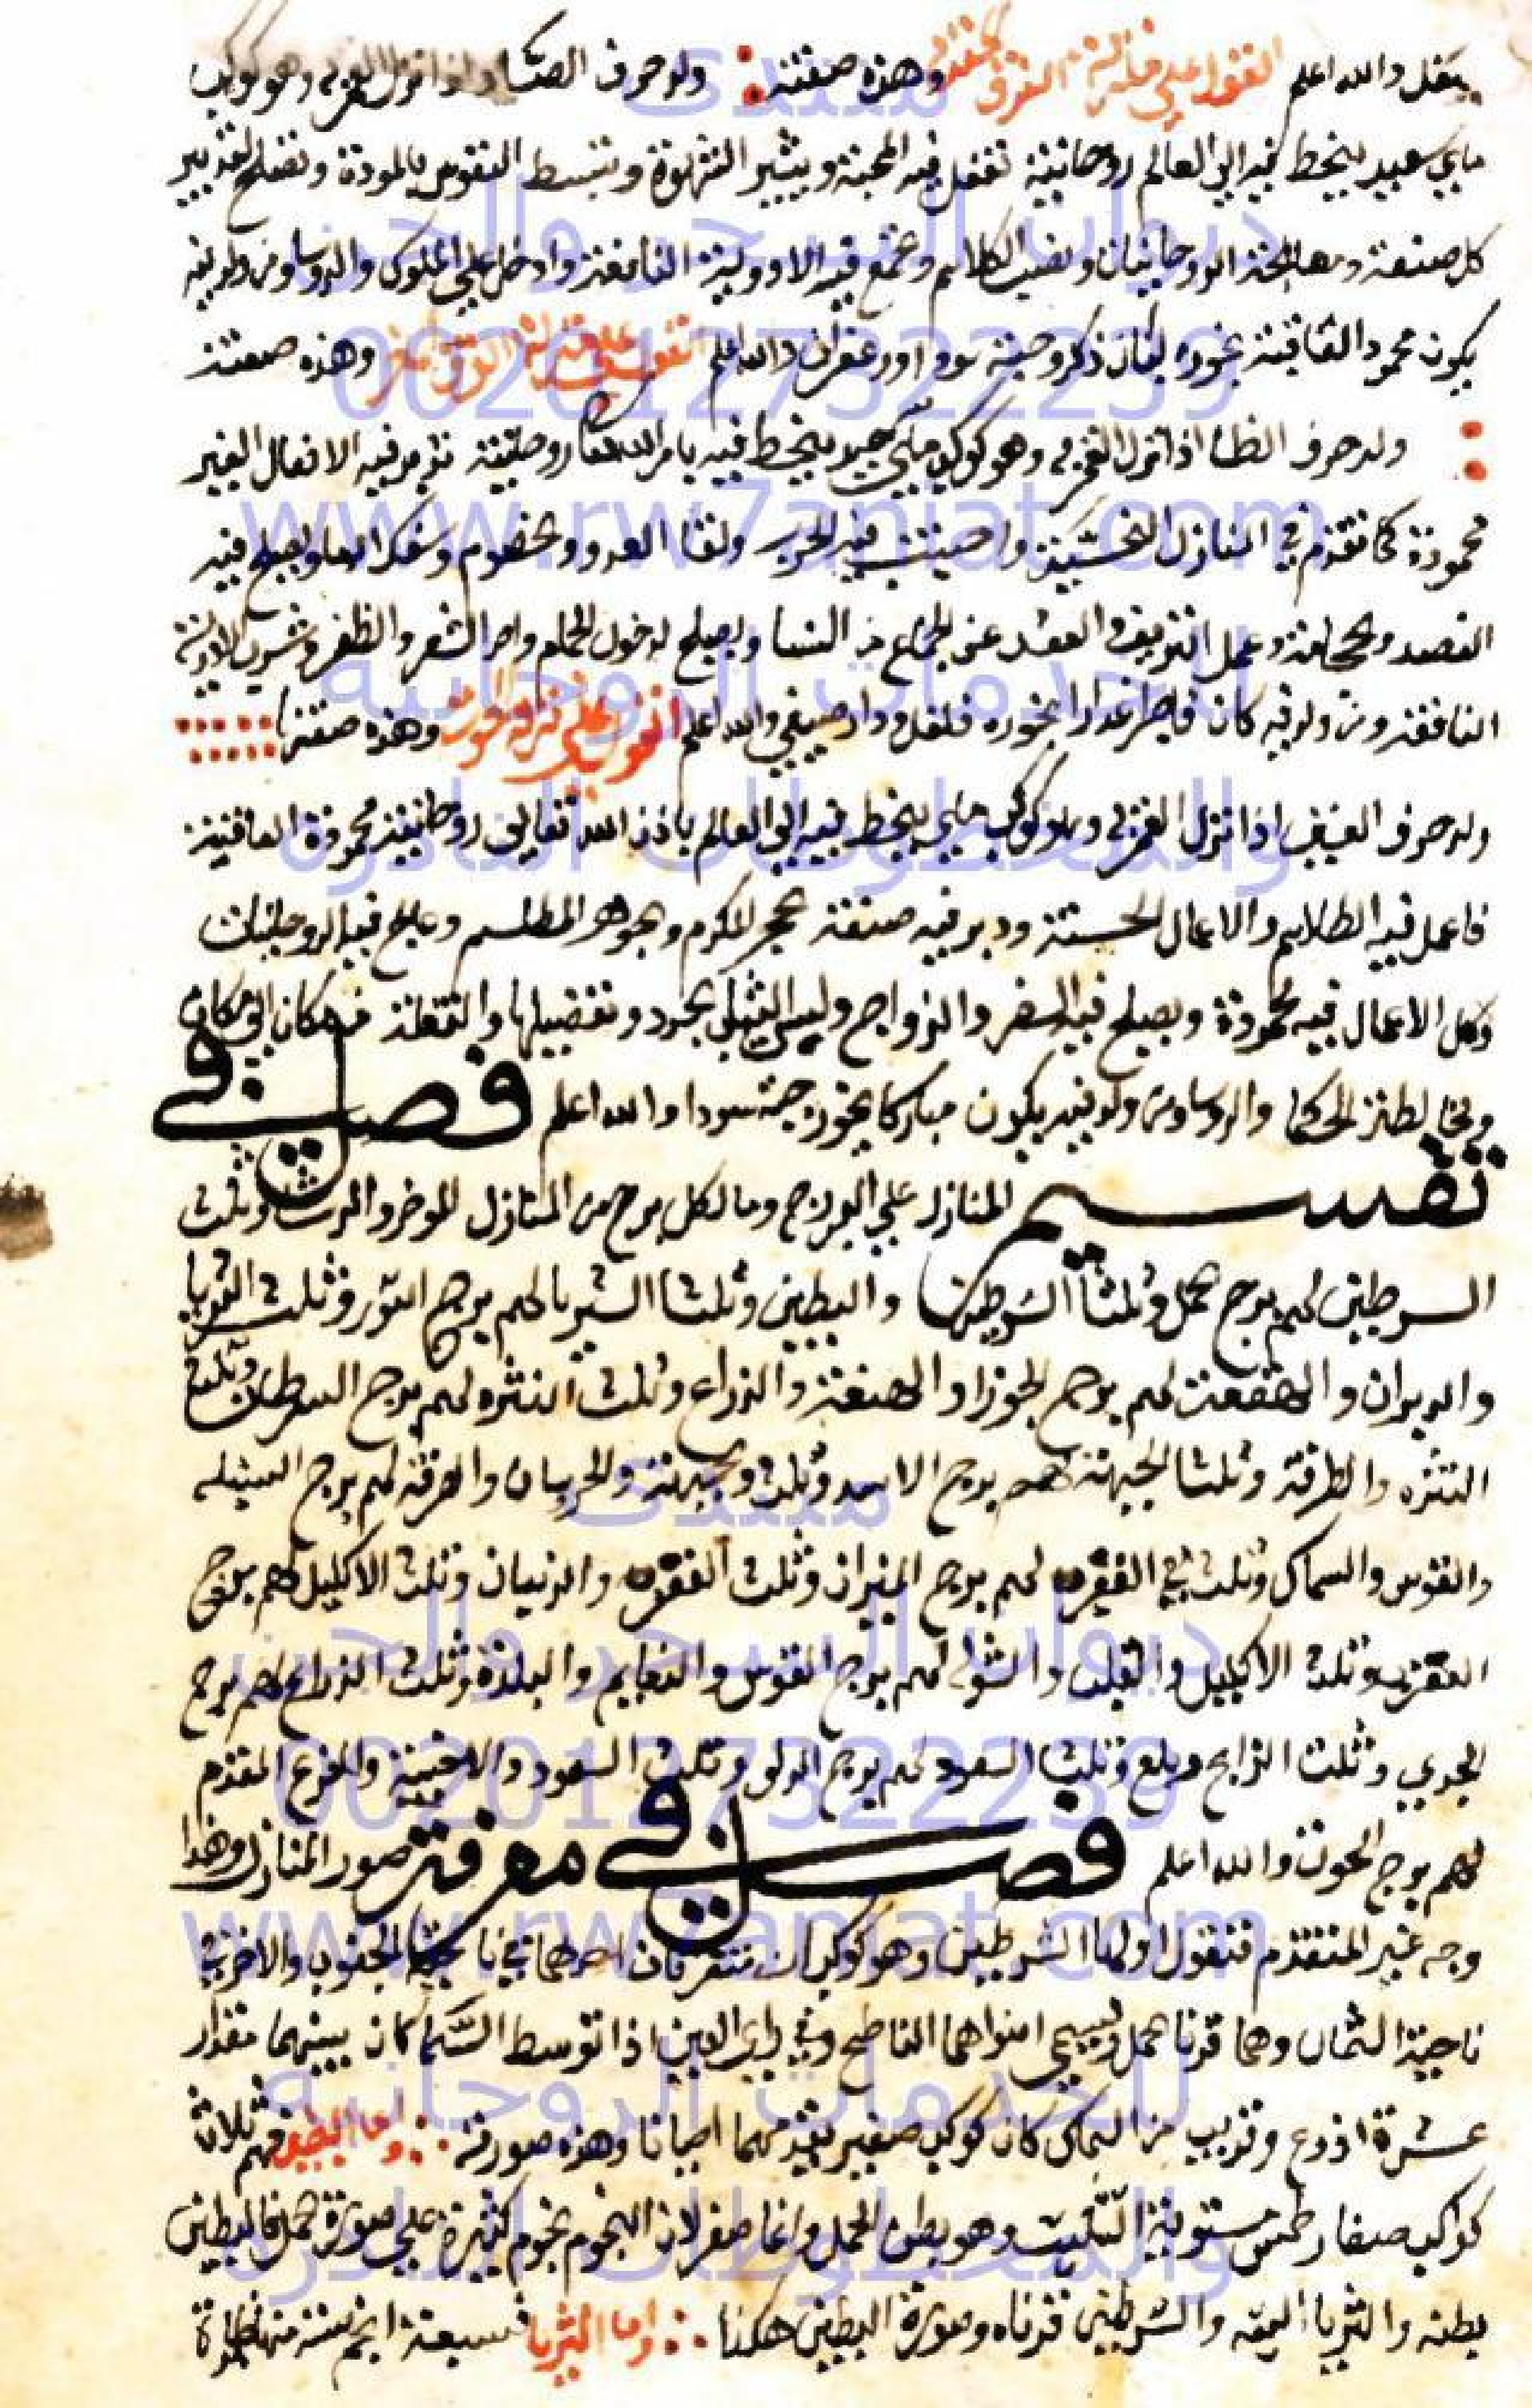 بقل والله اعلم القول على منزلة الفرغ المقدم وهذه صفته وله حرف الضاد اذا نزل القمر به وهو كوكب
ماي سعيد ينحط فيه الى العالم روحانية تفعل فيه المحبة ويثير الشهوة وتنبسط النفوس بالمودة وتصلح لتدبير
كل صنعة ومعالجة الروحانيات ونصب الطلاسم وتجمع فيه الادوية النافعة وادخل على الملوك والروسا ومن ولد فيه
يكون محمود العاقبة بخوره لبان ذكر وحبة سودا وزعفران والله اعلم القول على منزلة الفرغ المؤخر وهذه صفته
وله حرف الظا اذا نزل القمر به وهو كوكب ينحط فيه بامر الله تعالى روحانية تدبر فيه الافعال الغير
محمودة كما تقدم في المنازل النحسية واجتنب فيه الحرب ولقا العدو وخصوم وسفك الدما ويصلح فيه
الفصد والحجامة وعمل النزيف والعقد عن الجماع من النسا ويصلح لدخول الحمام واخذ الشعر والظفر وشرب الادوية
النافعة ومن ولد فيه كان فاجرا غدارا بخوره فلفل ودار صيني والله اعلم القول على منزلة الحوت وهذه صفتها
وله حرف الغين اذا نزل القمر به وهو كوكب ماي ينحط فيه الى العالم باذن الله تعالى روحانية محمودة العاقبة
فاعمل فيه الطلاسم والاعمال الحسنة ودبر فيه صنعة حجر المكرم وبجوهر المطلسم وعالج فيه الروحانيات
وكل الاعمال فيه محمودة ويصلح فيه السفر والزواج ولبس الثياب بجدد وتفصيلها والنقلة من مكان الى مكان
ومخالطة الحكما والروسا ومن ولد فيه يكون مباركا بخوره حبة سودا والله اعلم فصل في
تقسيم المنازل على البروج وما لكل برج من المنازل الموخر والرشا وثلث
السرطين لهم برج حمل وثلثا الشرطين والبطين وثلثا الثريا لهم برج الثور وثلث الثريا
والدبران والهقعة لهم برج الجوزا والهنعة والذراع وثلث النثره لهم برج السرطان وثلثا
النثره والطرفة وثلثا الجبهة لهم برج الاسد وثلث وجبهة والخرسان والصرفة لهم برج السنبله
والعوس والسماك وثلث الغفره لهم برج الميزان وثلث الغفره والزبنان وثلث الاكليل لهم برج
العقرب وثلث الاكليل والقلب والشوله لهم برج القوس والنعايم والبلدة وثلث الذابح لهم برج
الجدي وثلث الذابح وبلع وثلث السعود لهم برج الدلو وثلث السعود والاخبية والفرع المقدم
لهم برج الحوت والله اعلم فصل في معرفة صور المنازل وهذا
وجه غير المتقدم فنقول اولها الشرطين وهو كوكبان مفترقان احدهما في ناحية الجنوب والاخر في
ناحية الشمال وهما قرنا حمل ويسمى اضواهما الناطح وفي راي العين اذا توسط السما كان بينهما مقدار
عشرة اذرع وقريب من السماك كان كوكب صغير يتقدمهما احيانا وهذه صورته واما البطين فهم ثلاث
كواكب صغار طمس مستوية التثليث وهو بطن الحمل وانما صغر لان النجوم نجوم كثيرة على صورة حمل فالبطين
بطنه والثريا اليته والشرطين قرناه وصورة البطين هكذا واما الثريا فسبعة انجم ستة منها ظاهرة
منتدى
ديوان السحر والجن
0020127322239
www.rw7aniat.com
للخدمات الروحانية
والمخطوطات النادرة
منتدى
ديوان السحر والجن
0020127322239
www.rw7aniat.com
للخدمات الروحانية
والمخطوطات النادرة